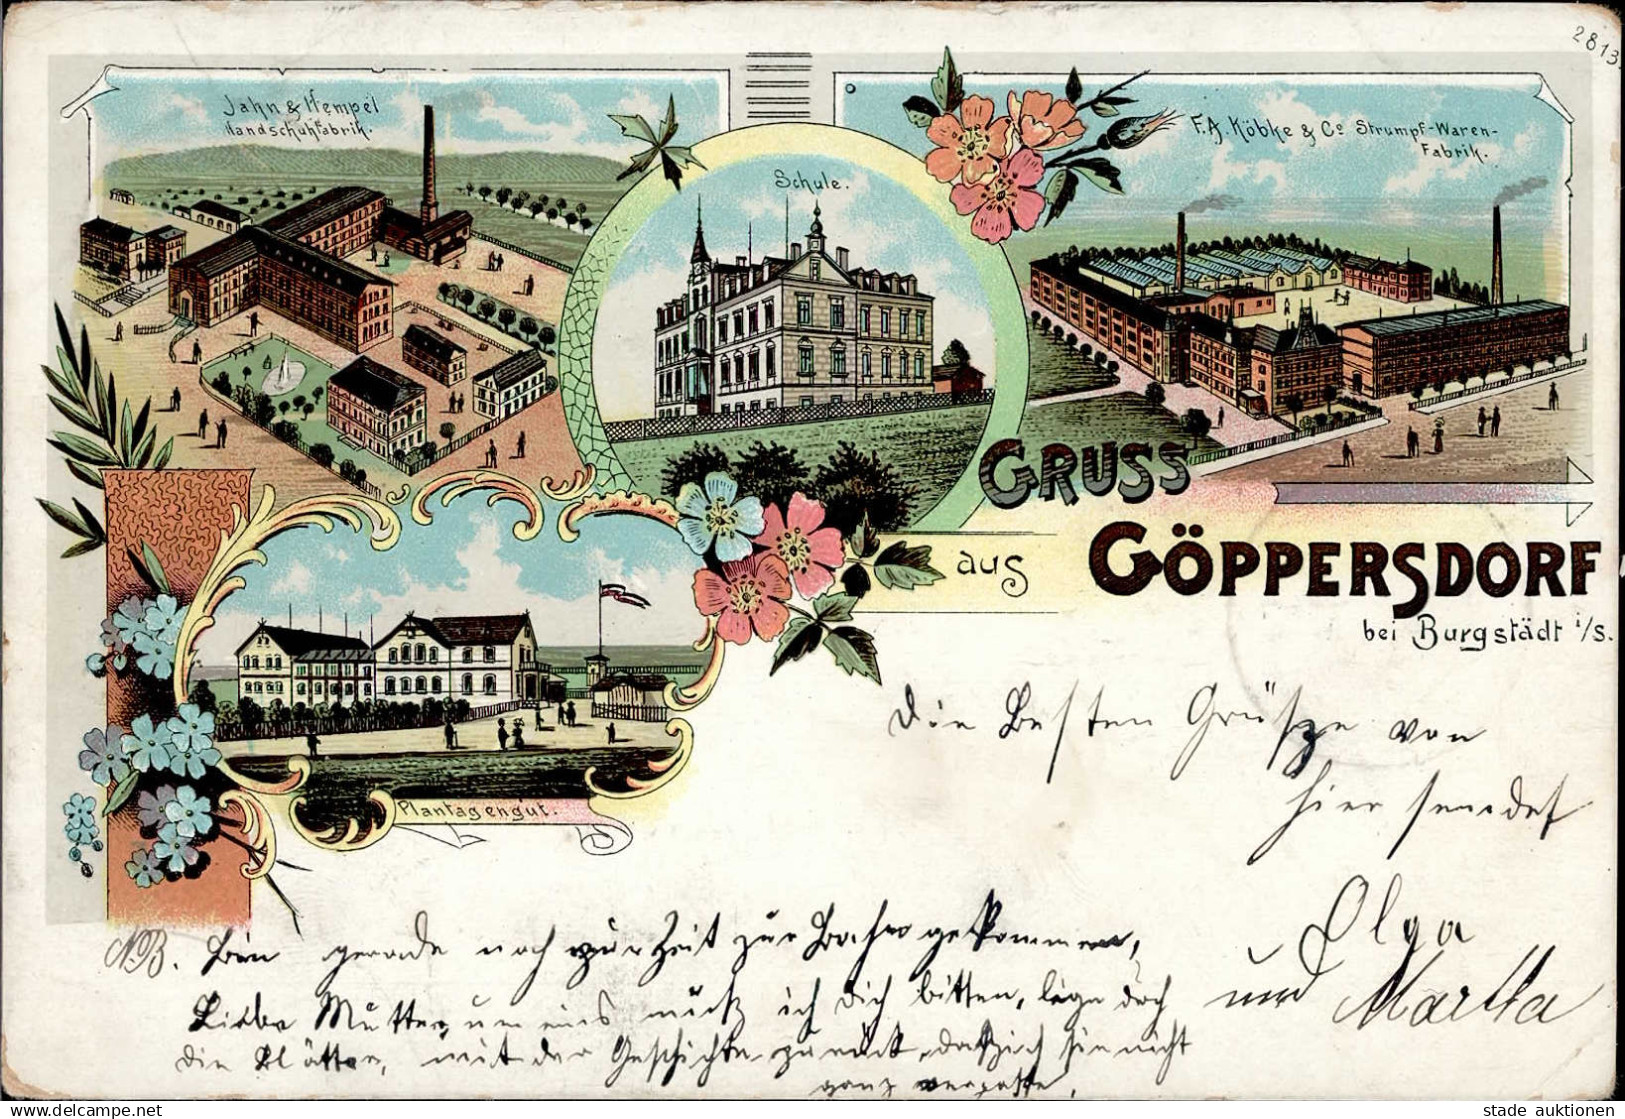 2813.
Jahn & Hempel
Handschuhfabrik.
Schule.
F.A. Köbke & Co Strumpf-Waren-
Fabrik.
GRUSS
aus GÖPPERSDORF
bei Burgstädt i/S.
Plantagengut.
Die besten Grüße von
hier sendet
Olga
und Martha
N.B. Bin gerade noch zur Zeit zur Bahn gekommen,
Liebe Mutter um eins muß ich dich bitten, lege doch
die Blätter, mit der Geschichte zurück, daß ich sie nicht
ganz vergesse,
delcampe.net
stade auktionen